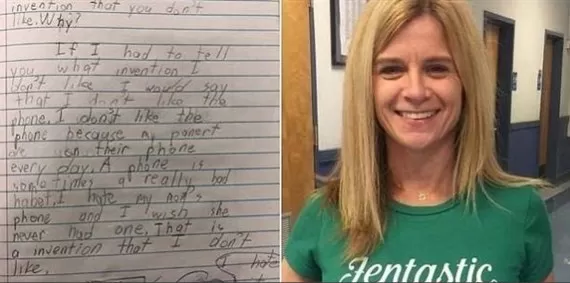 invention that you don't
like. Why?
If I had to tell
you what invention I
don't like I would say
that I don't like the
phone. I don't like the
phone because my panert
are on their phone
every day. A phone is
sometimes a really bad
habet. I hate my mom's
phone and I wish she
never had one. That is
a invention that I don't
like.
I hate
Jentastic.